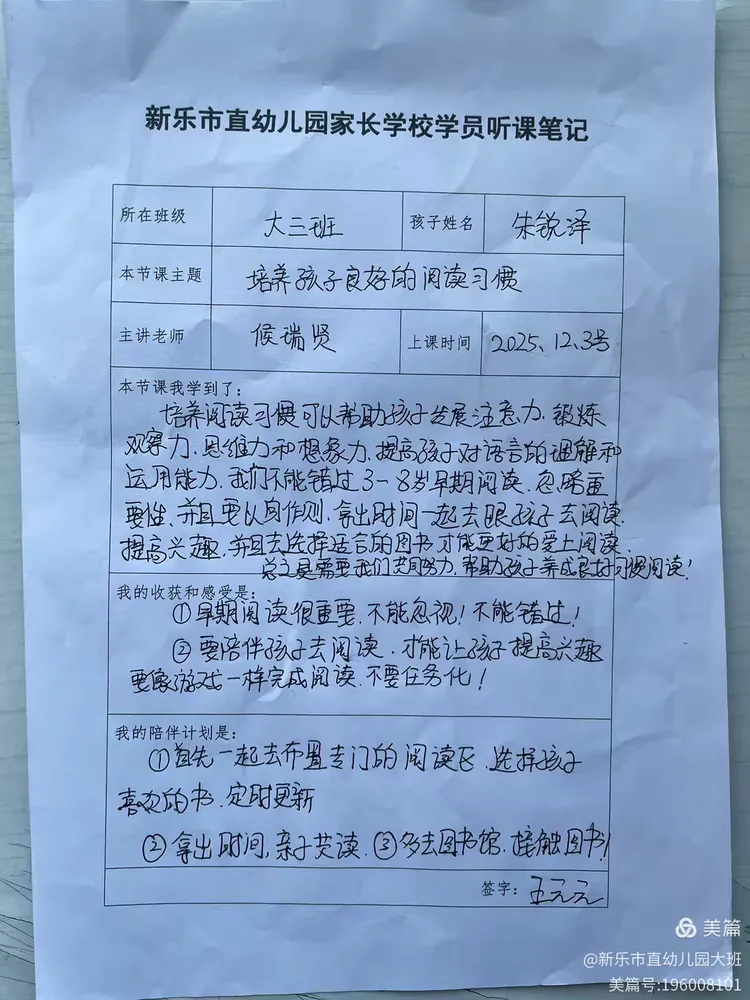 新乐市直幼儿园家长学校学员听课笔记
所在班级 大三班 孩子姓名 朱锐泽
本节课主题 培养孩子良好的阅读习惯
主讲老师 候瑞贤 上课时间 2025、12.3号
本节课我学到了：
培养阅读习惯可以帮助孩子发展注意力、锻炼
观察力、思维力和想象力、提高孩子对语言的理解和
运用能力、我们不能错过3-8岁早期阅读、忽略重
要性、并且要以身作则、拿出时间一起去跟孩子去阅读、
提高兴趣、并且去选择适合的图书才能更好的爱上阅读、
总之是需要我们共同努力、帮助孩子养成良好习惯阅读！
我的收获和感受是：
①早期阅读很重要、不能忽视！不能错过！
②要陪伴孩子去阅读、才能让孩子提高兴趣
要像游戏一样完成阅读、不要任务化！
我的陪伴计划是：
①首先一起去布置专门的阅读区、选择孩子
喜欢的书、定时更新
②拿出时间、亲子共读、③多去图书馆、接触图书！
签字：王元元
美篇
@新乐市直幼儿园大班
美篇号:196008101